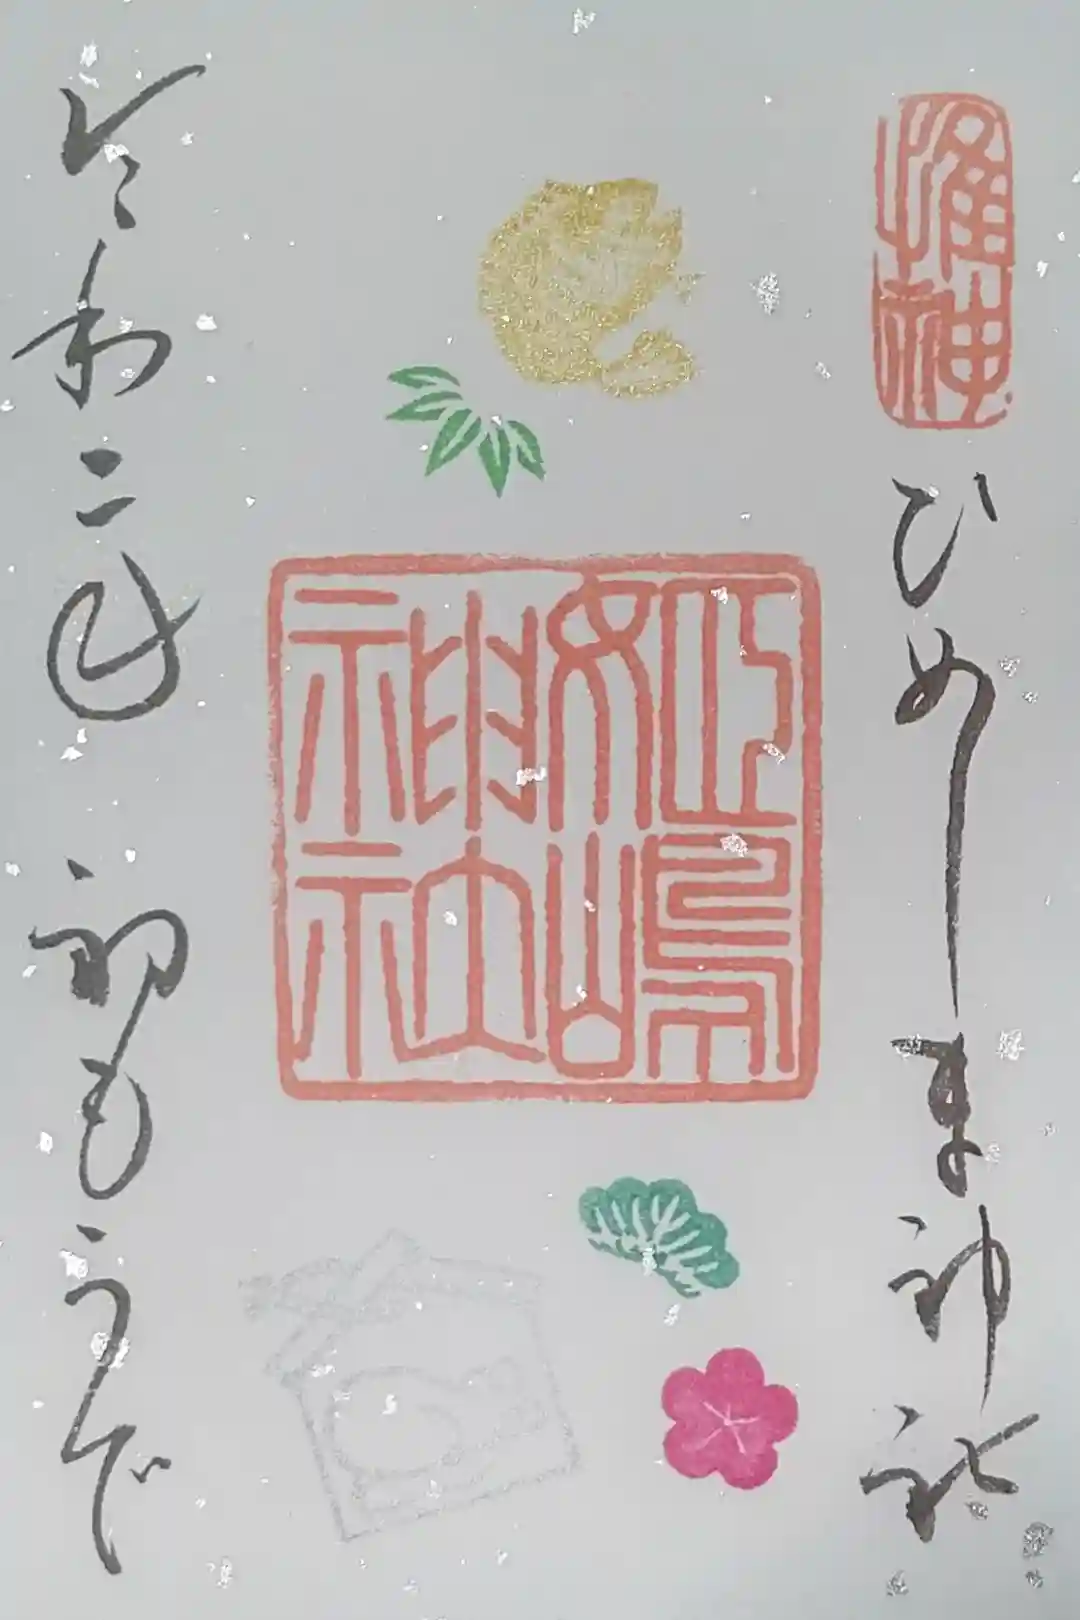 惟神
ひめしま神社
姫嶋
神社
令和二年 初もうで